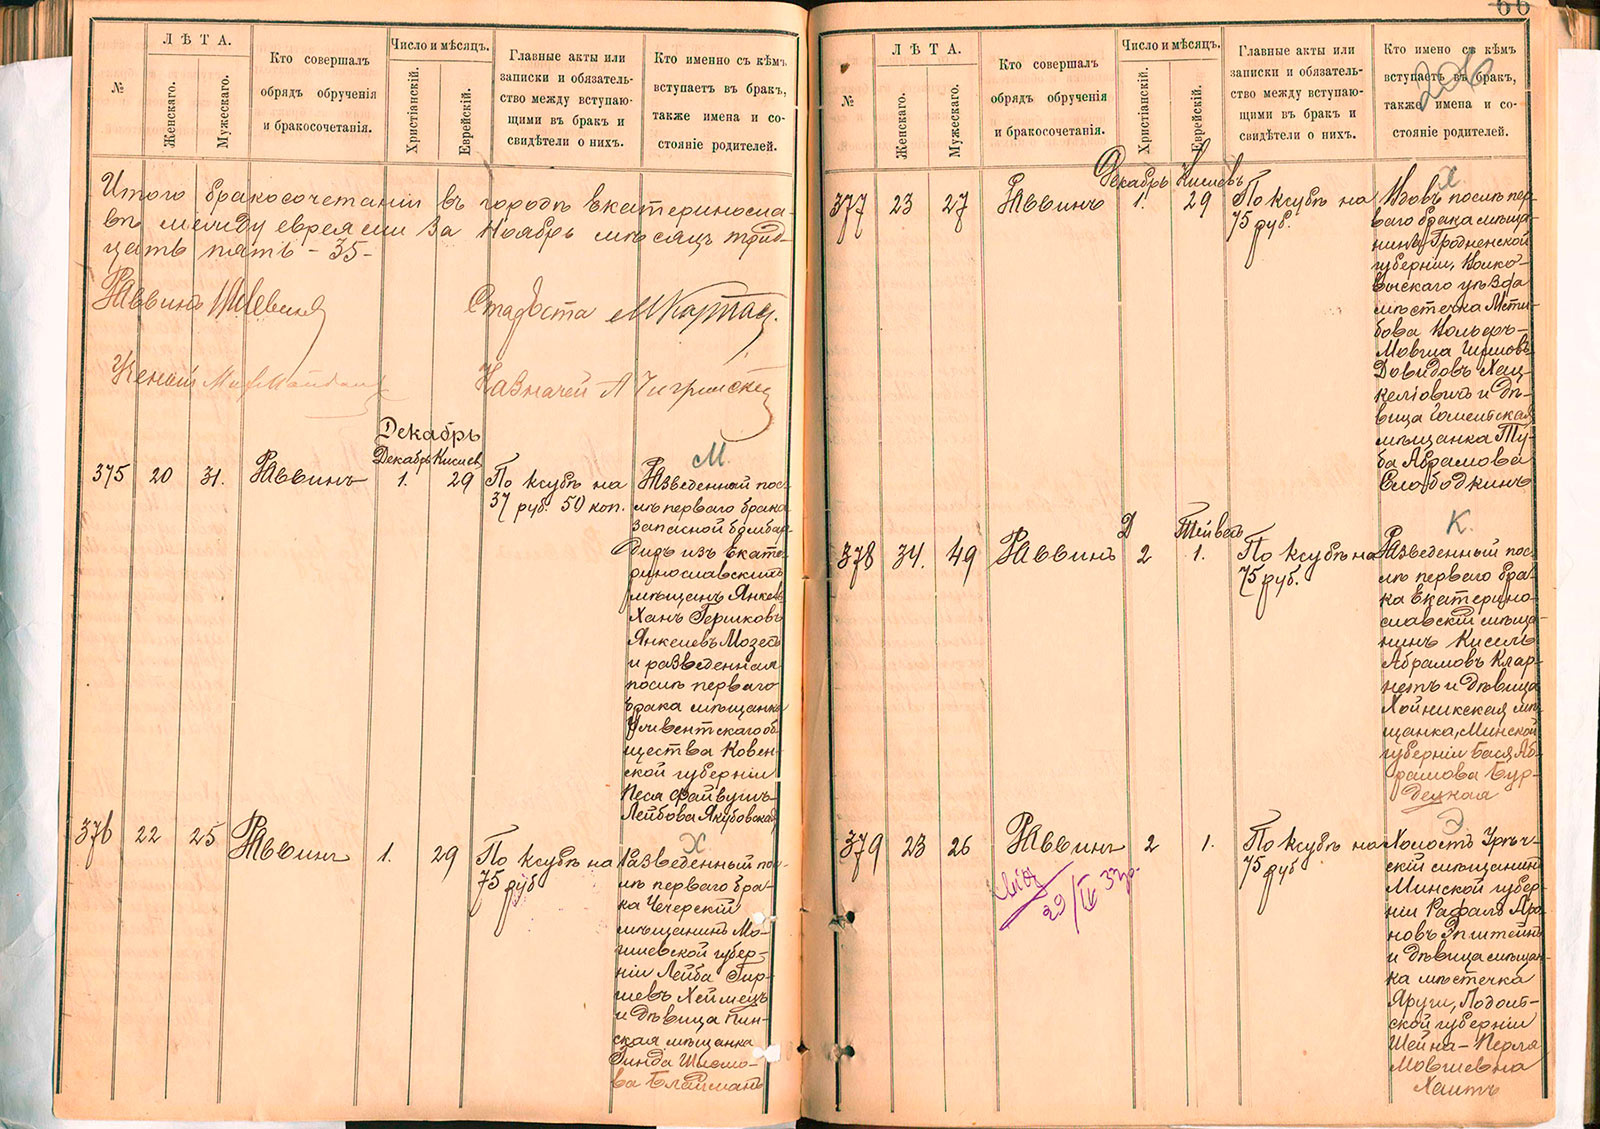 66
206
№
ЛѢТА.
Женскаго.
Мужескаго.
Кто совершалъ
обрядъ обрученія
и бракосочетанія.
Число и мѣсяцъ.
Христіанскій.
Еврейскій.
Главные акты или
записки и обязатель-
ство между вступаю-
щими въ бракъ и
свидѣтели о нихъ.
Кто именно съ кѣмъ
вступаетъ въ бракъ,
также имена и со-
стояніе родителей.
Итого бракосочетаній въ городѣ Екатериносла-
вѣ между евреями за Ноябрь мѣсяцъ трид-
цать пять - 35 -
Раввинъ
Староста М Карпас
Ученый
Казначей А
Декабрь
Декабрь Кислев
375 20 31. Раввинъ 1. 29
По ксубѣ на
37 руб. 50 коп.
М.
Разведенный пос-
лѣ перваго брака
запасной бомбар-
диръ изъ Екате-
ринославскихъ
мѣщанъ Янкель
Ханъ Гершковъ
Янкелевъ Мозесъ
и разведенная
послѣ перваго
брака мѣщанка
общества Ковен-
ской губерніи
Песя Файвушъ-
Лейбова Якубовская
376 22 25 Раввинъ 1. 29
По ксубѣ на
75 руб
Х
Разведенный пос-
лѣ перваго бра-
ка Чечерскій
мѣщанинъ Мо-
гилевской губер-
ніи Лейба Гир-
шевъ Хеймецъ
и дѣвица Пин-
ская мѣщанка
Зинда Шлемо-
ва Блайманъ
№
ЛѢТА.
Женскаго.
Мужескаго.
Кто совершалъ
обрядъ обрученія
и бракосочетанія.
Число и мѣсяцъ.
Христіанскій.
Еврейскій.
Главные акты или
записки и обязатель-
ство между вступаю-
щими въ бракъ и
свидѣтели о нихъ.
Кто имено съ кѣмъ
вступаетъ въ бракъ,
также имена и со-
стояніе родителей.
Декабрь Кислевъ
377 23 27 Раввинъ 1. 29
По ксубѣ на
75 руб.
Х
Вдовъ послѣ пер-
ваго брака мѣща-
нинъ Гродненской
губерніи, Волко-
выскаго уѣзда
мѣстечка Мсти-
бова Вольфъ-
Мовша Гиршовъ
Довидовъ Хац-
келіовичъ и дѣ-
вица Гомельская
мѣщанка Ту-
ба Абрамова
Слободкинъ
Д Тейвесъ
378 34. 49 Раввинъ 2 1.
По ксубѣ на
75 руб.
К.
Разведенный пос-
лѣ перваго бра-
ка Екатерино-
славскій мѣща-
нинъ Кисель
Абрамовъ Клар-
нетъ и дѣвица
Хойникская мѣ-
щанка, Минской
губерніи Бася Аб-
рамова Бур-
децкая
379 23 26 Раввинъ 2 1.
29/IV 37 г.
По ксубѣ на
75 руб
Э
Холостъ Урѣч-
скій мѣщанинъ
Минской губер-
ніи Рафалъ Аро-
новъ Эпштейнъ
и дѣвица мѣщан-
ка мѣстечка
Яруги, Подоль-
ской губерніи
Шейна-Перля
Мовшевна
Хаитъ